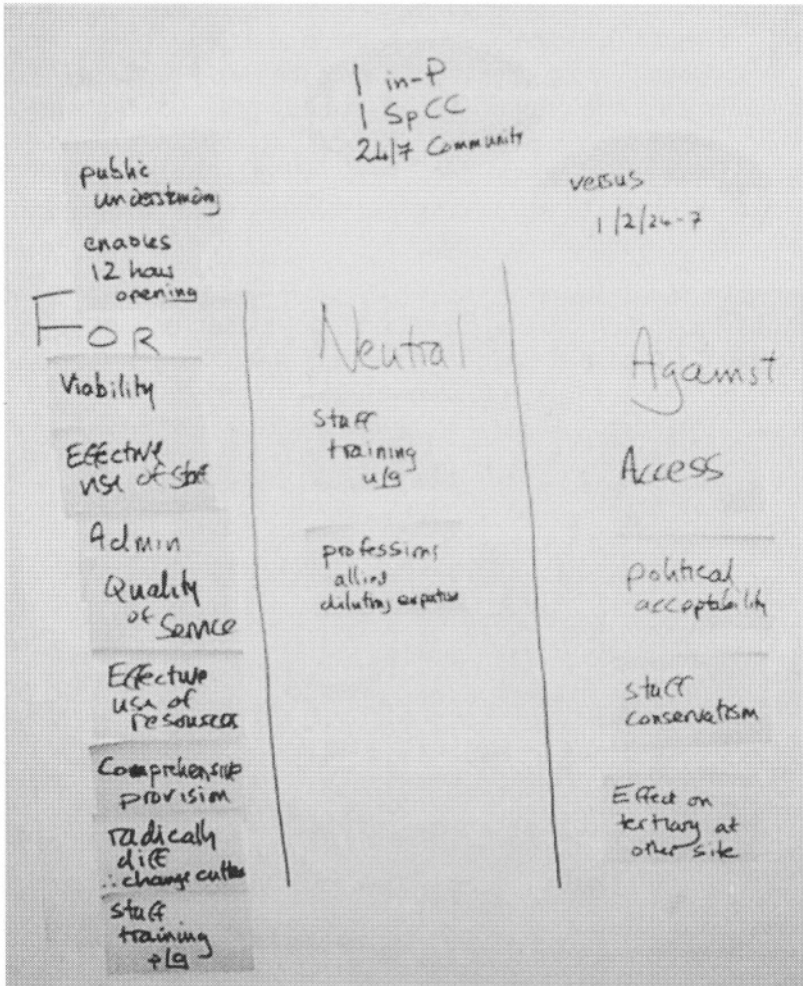 1 in-P
1 SpCC
24/7 Community
versus
1/2/24-7
public
understanding
enables
12 hour
opening
FOR
Viability
Effective
use of staff
Admin
Quality
of Service
Effective
use of
resources
Comprehensive
provision
radically
diff
∴ change culture
staff
training
p/g
Neutral
staff
training
u/g
professions
allied
diluting expertise
Against
Access
political
acceptability
staff
conservatism
Effect on
tertiary at
other site